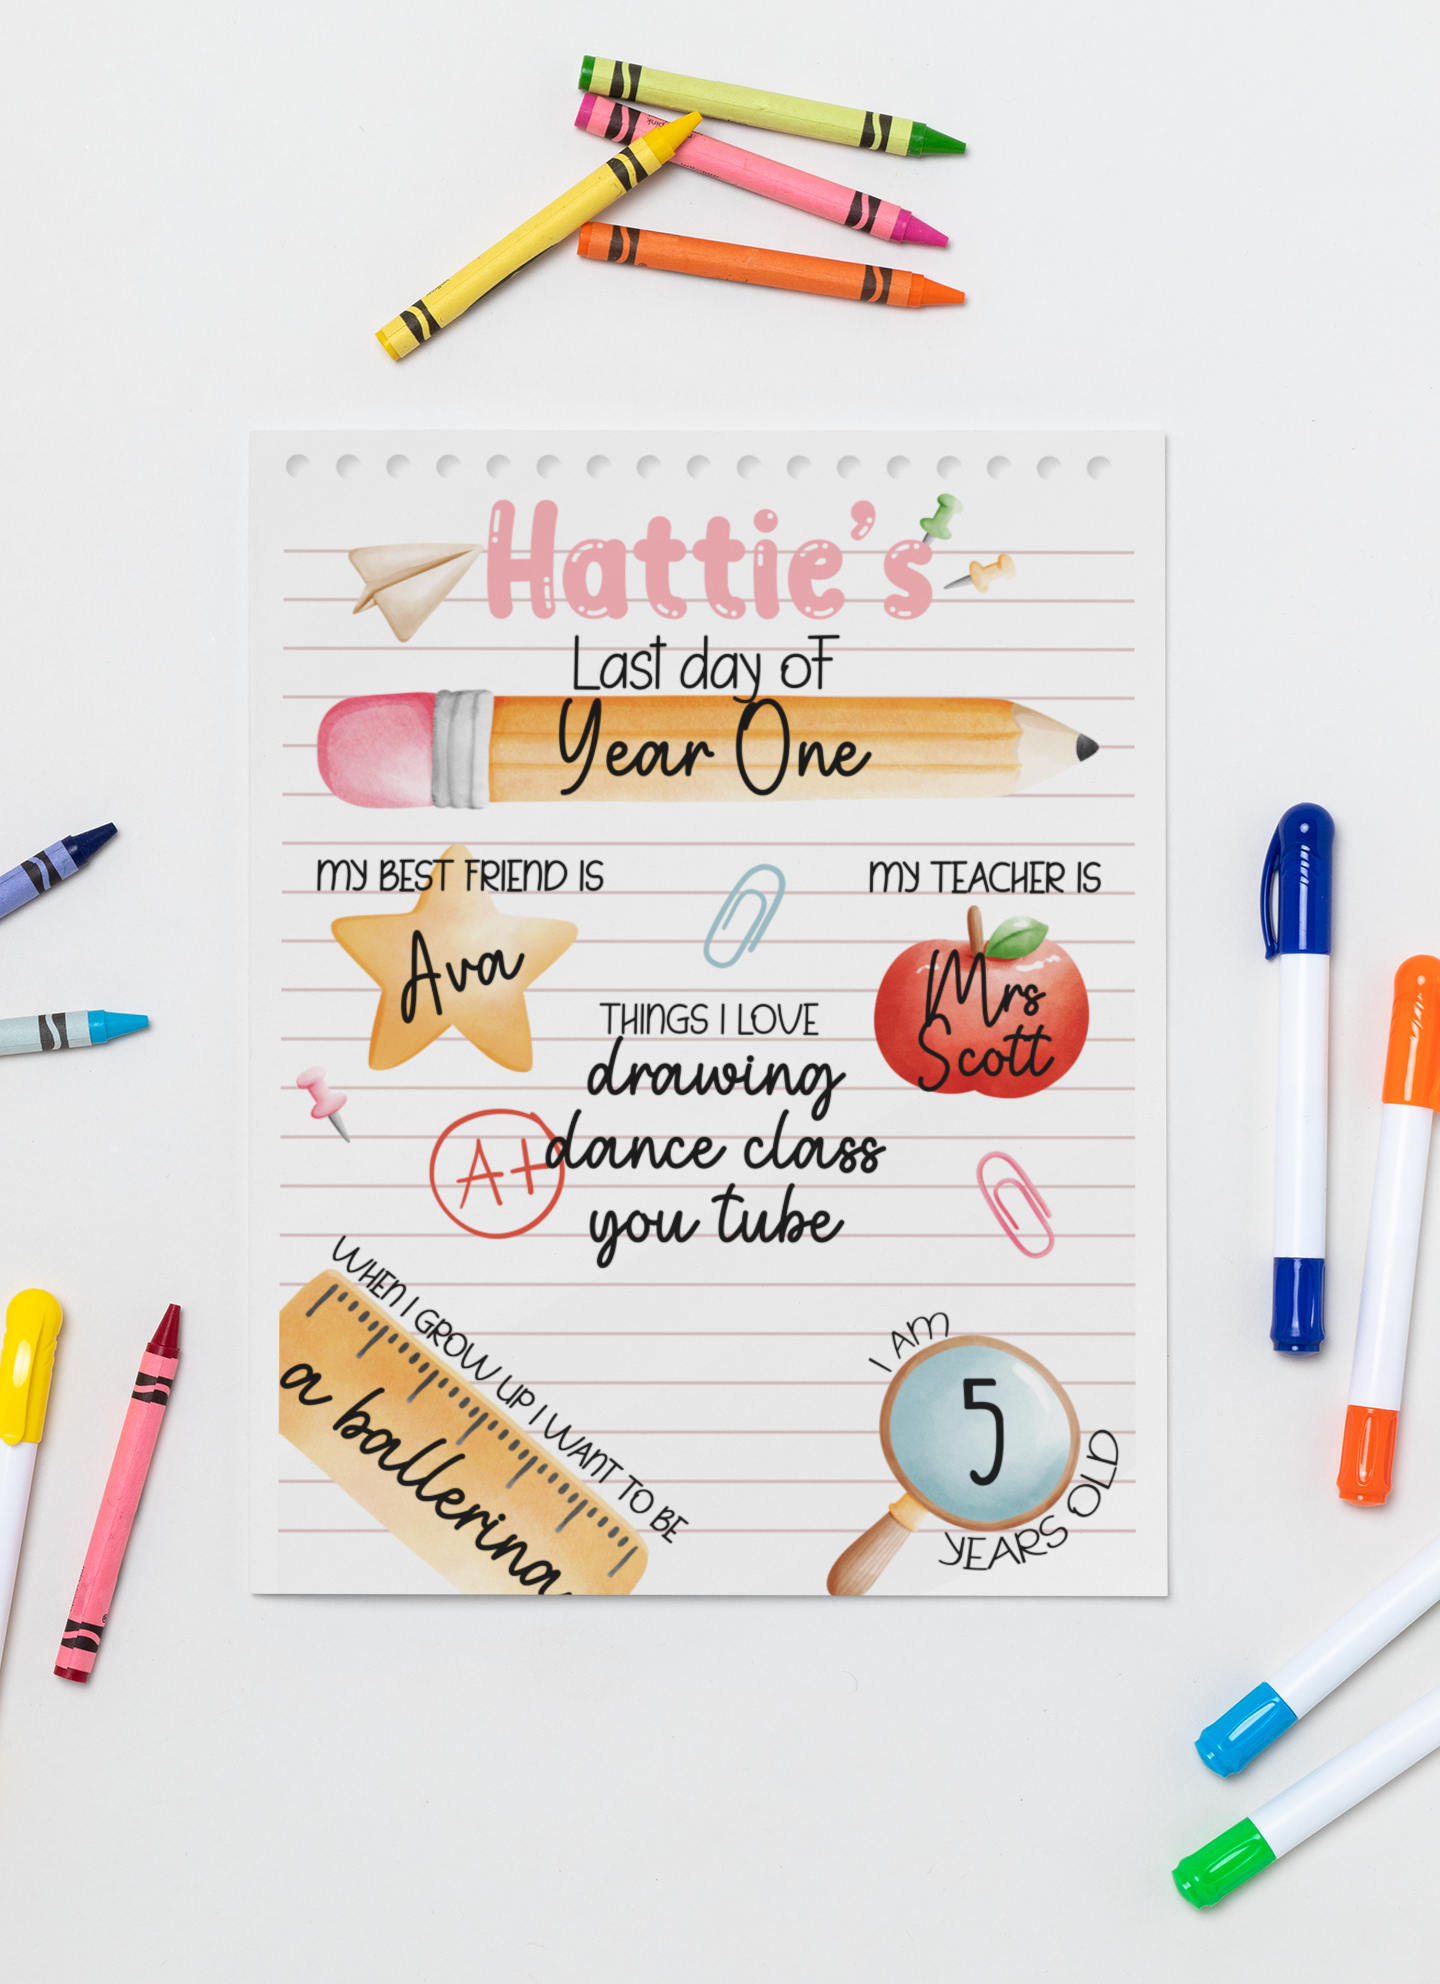 Hattie's
Last day of
Year One
MY BEST FRIEND IS
Ava
MY TEACHER IS
Mrs
Scott
THINGS I LOVE
drawing
dance class
you tube
A+
WHEN I GROW UP I WANT TO BE
a ballerina
I AM
5
YEARS OLD
pink